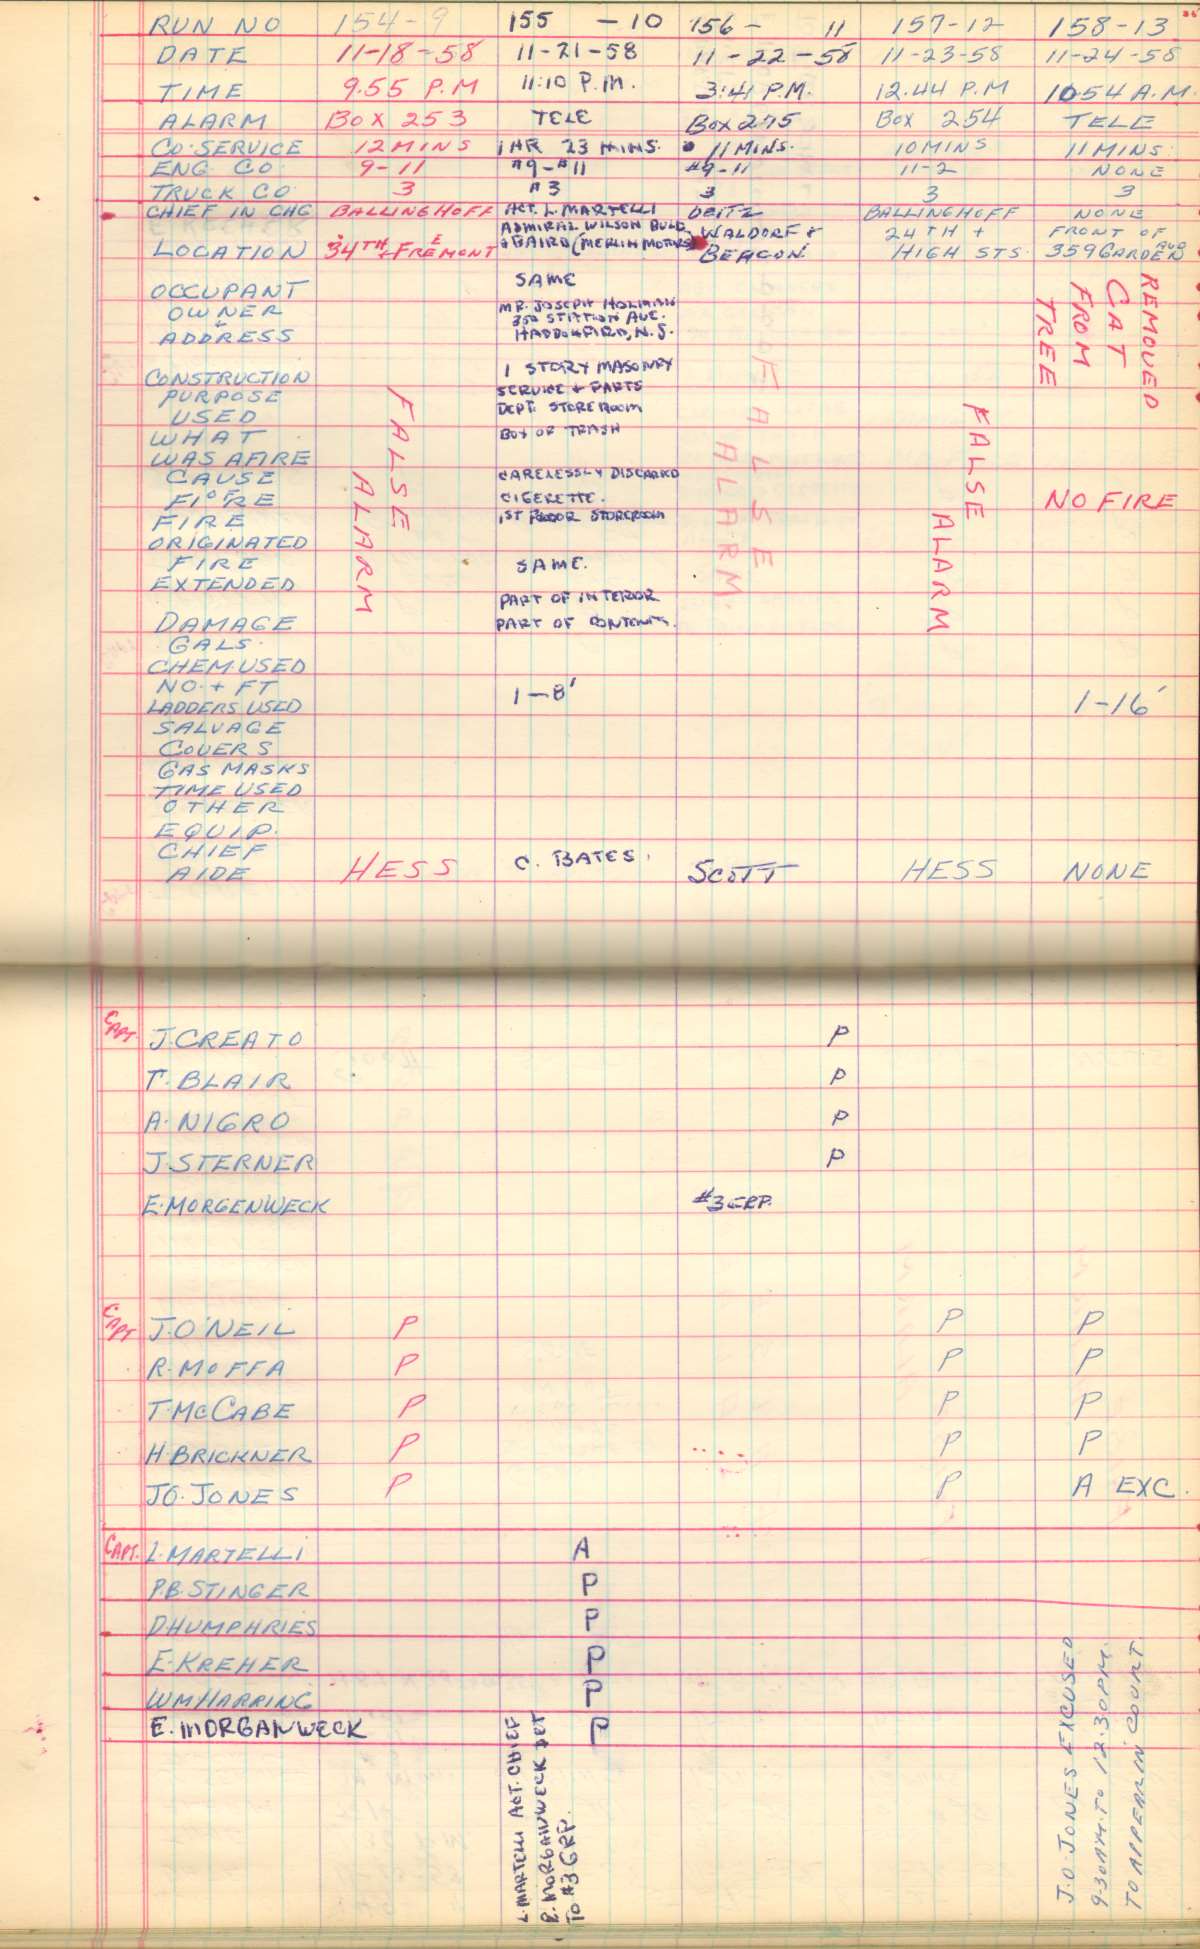 RUN NO 154-9 155 -10 156- 11 157-12 158-13
DATE 11-18-58 11-21-58 11-22-58 11-23-58 11-24-58
TIME 9.55 P.M 11:10 P.M. 3:41 P.M. 12.44 P.M 10 54 A.M.
ALARM BOX 253 TELE BOX 275 BOX 254 TELE
CO. SERVICE 12 MINS 1 HR 23 MINS. 11 MINS. 10 MINS 11 MINS.
ENG. CO. 9-11 #9-#11 #9-11 11-2 NONE
TRUCK CO. 3 #3 3 3 3
CHIEF IN CHG BALLINGHOFF ACT. L. MARTELLI DEITZ BALLINGHOFF NONE
LOCATION 34TH + FREMONT
ADMIRAL WILSON BULD.
+ BAIRD (MERLIN MOTORS)
WALDORF +
BEACON.
24TH +
HIGH STS.
FRONT OF
359 GARDEN AVE
OCCUPANT SAME
OWNER
+
ADDRESS
MR. JOSEPH HOLMAN
350 STATION AVE.
HADDONFIELD, N.J.
CONSTRUCTION 1 STORY MASONRY
PURPOSE
USED
SERVICE + PARTS
DEPT. STOREROOM
WHAT
WAS AFIRE
BOX OF TRASH
CAUSE
OF
FIRE
CARELESSLY DISCARED
CIGERETTE.
FIRE
ORIGINATED
1ST FLOOR STOREROOM
FIRE
EXTENDED
SAME.
DAMAGE
PART OF INTERIOR
PART OF CONTENTS.
GALS.
CHEM. USED
NO. + FT
LADDERS USED 1-8' 1-16'
SALVAGE
COVERS
GAS MASKS
TIME USED
OTHER
EQUIP.
CHIEF
AIDE HESS C. BATES. SCOTT HESS NONE
FALSE
ALARM
FALSE
ALARM.
FALSE
ALARM
REMOVED
CAT
FROM
TREE
NO FIRE
CAPT. J. CREATO P
T. BLAIR P
A. NIGRO P
J. STERNER P
E. MORGENWECK #3 GRP.
CAPT J. O'NEIL P P P
R. MOFFA P P P
T. McCABE P P P
H. BRICKNER P P P
J.O. JONES P P A EXC.
CAPT. L. MARTELLI A
P.B. STINGER P
D HUMPHRIES P
E. KREHER P
WM HARRING P
E. MORGANWECK P
L. MARTELLI ACT. CHIEF
R. MORGANWECK DET
TO #3 GRP.
J.O. JONES EXCUSED
9.30 AM. TO 12.30 PM.
TO APPEAR IN COURT.